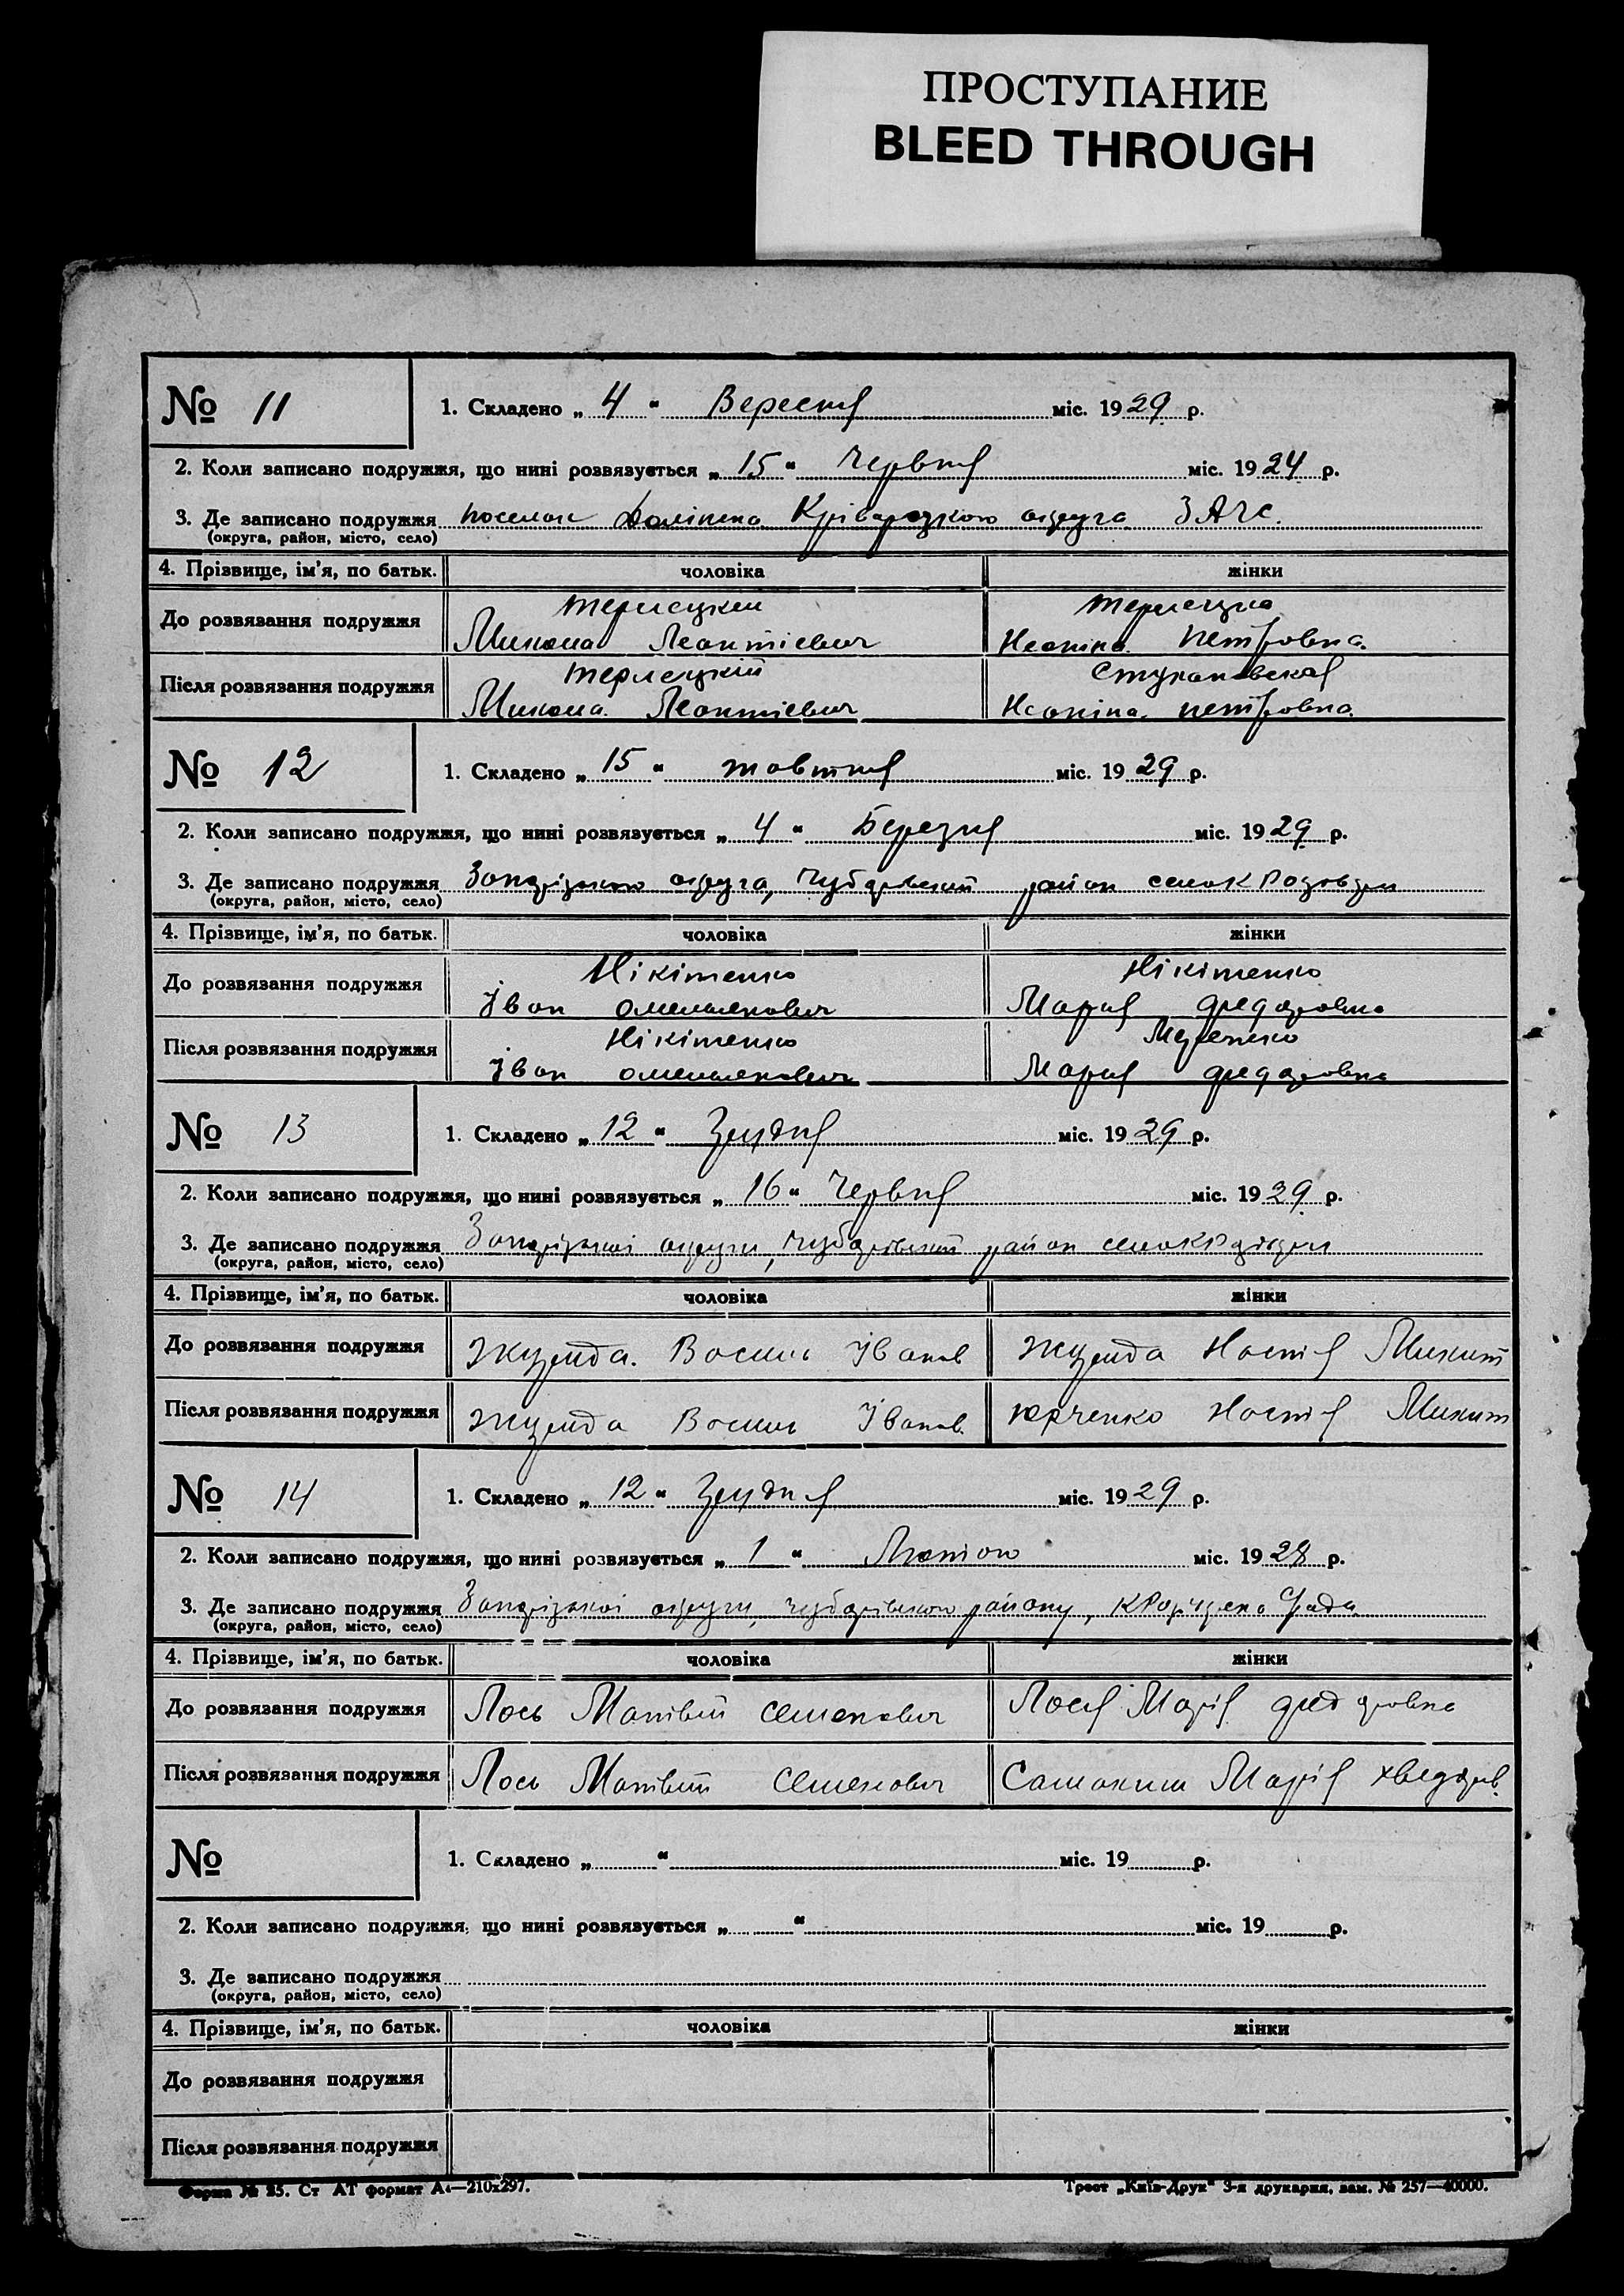 ПРОСТУПАНИЕ
BLEED THROUGH
№ 11
1. Складено „ 4 " Вересня міс. 1929 р.
2. Коли записано подружжя, що нині розвязується „ 15 " Червня міс. 1924 р.
3. Де записано подружжя поселок Долінска Кріварожкого округа ЗАГС.
(округа, район, місто, село)
4. Прізвище, ім'я, по батьк. чоловіка жінки
До розвязання подружжя Терлецкий Терлецка
Микола Леонтієвич Неоніна Петровна.
Після розвязання подружжя Терлецкій
Микола. Леонтієвич Неоніна. Петровна.
№ 12
1. Складено „ 15 " жовтня міс. 1929 р.
2. Коли записано подружжя, що нині розвязується „ 4 " Березня міс. 1929 р.
3. Де записано подружжя округа, район
(округа, район, місто, село)
4. Прізвище, ім'я, по батьк. чоловіка жінки
До розвязання подружжя Нікітенко Нікітенко
Іван Омельянович Мария Федоровна
Після розвязання подружжя Нікітенко
Іван Омельянович Мария Федоровна
№ 13
1. Складено „ 12 " Грудня міс. 1929 р.
2. Коли записано подружжя, що нині розвязується „ 16 " Червня міс. 1929 р.
3. Де записано подружжя округи, район
(округа, район, місто, село)
4. Прізвище, ім'я, по батьк. чоловіка жінки
До розвязання подружжя Василь Іванов Настія Микит
Після розвязання подружжя Василь Іванов. Юрченко Настія Микит
№ 14
1. Складено „ 12 " Грудня міс. 1929 р.
2. Коли записано подружжя, що нині розвязується „ 1 " Лютого міс. 1928 р.
3. Де записано подружжя округи, району,
(округа, район, місто, село)
4. Прізвище, ім'я, по батьк. чоловіка жінки
До розвязання подружжя Лось Матвій Семенович Лося Марія Федоровна
Після розвязання подружжя Лось Матвій Семенович Марія Хведоров.
№
1. Складено „ " міс. 19 р.
2. Коли записано подружжя, що нині розвязується „ " міс. 19 р.
3. Де записано подружжя
(округа, район, місто, село)
4. Прізвище, ім'я, по батьк. чоловіка жінки
До розвязання подружжя
Після розвязання подружжя
Форма № 25. Ст АТ формат А4—210x297. Трест „Київ-Друк" 3-я друкарня, зам. № 257—40000.